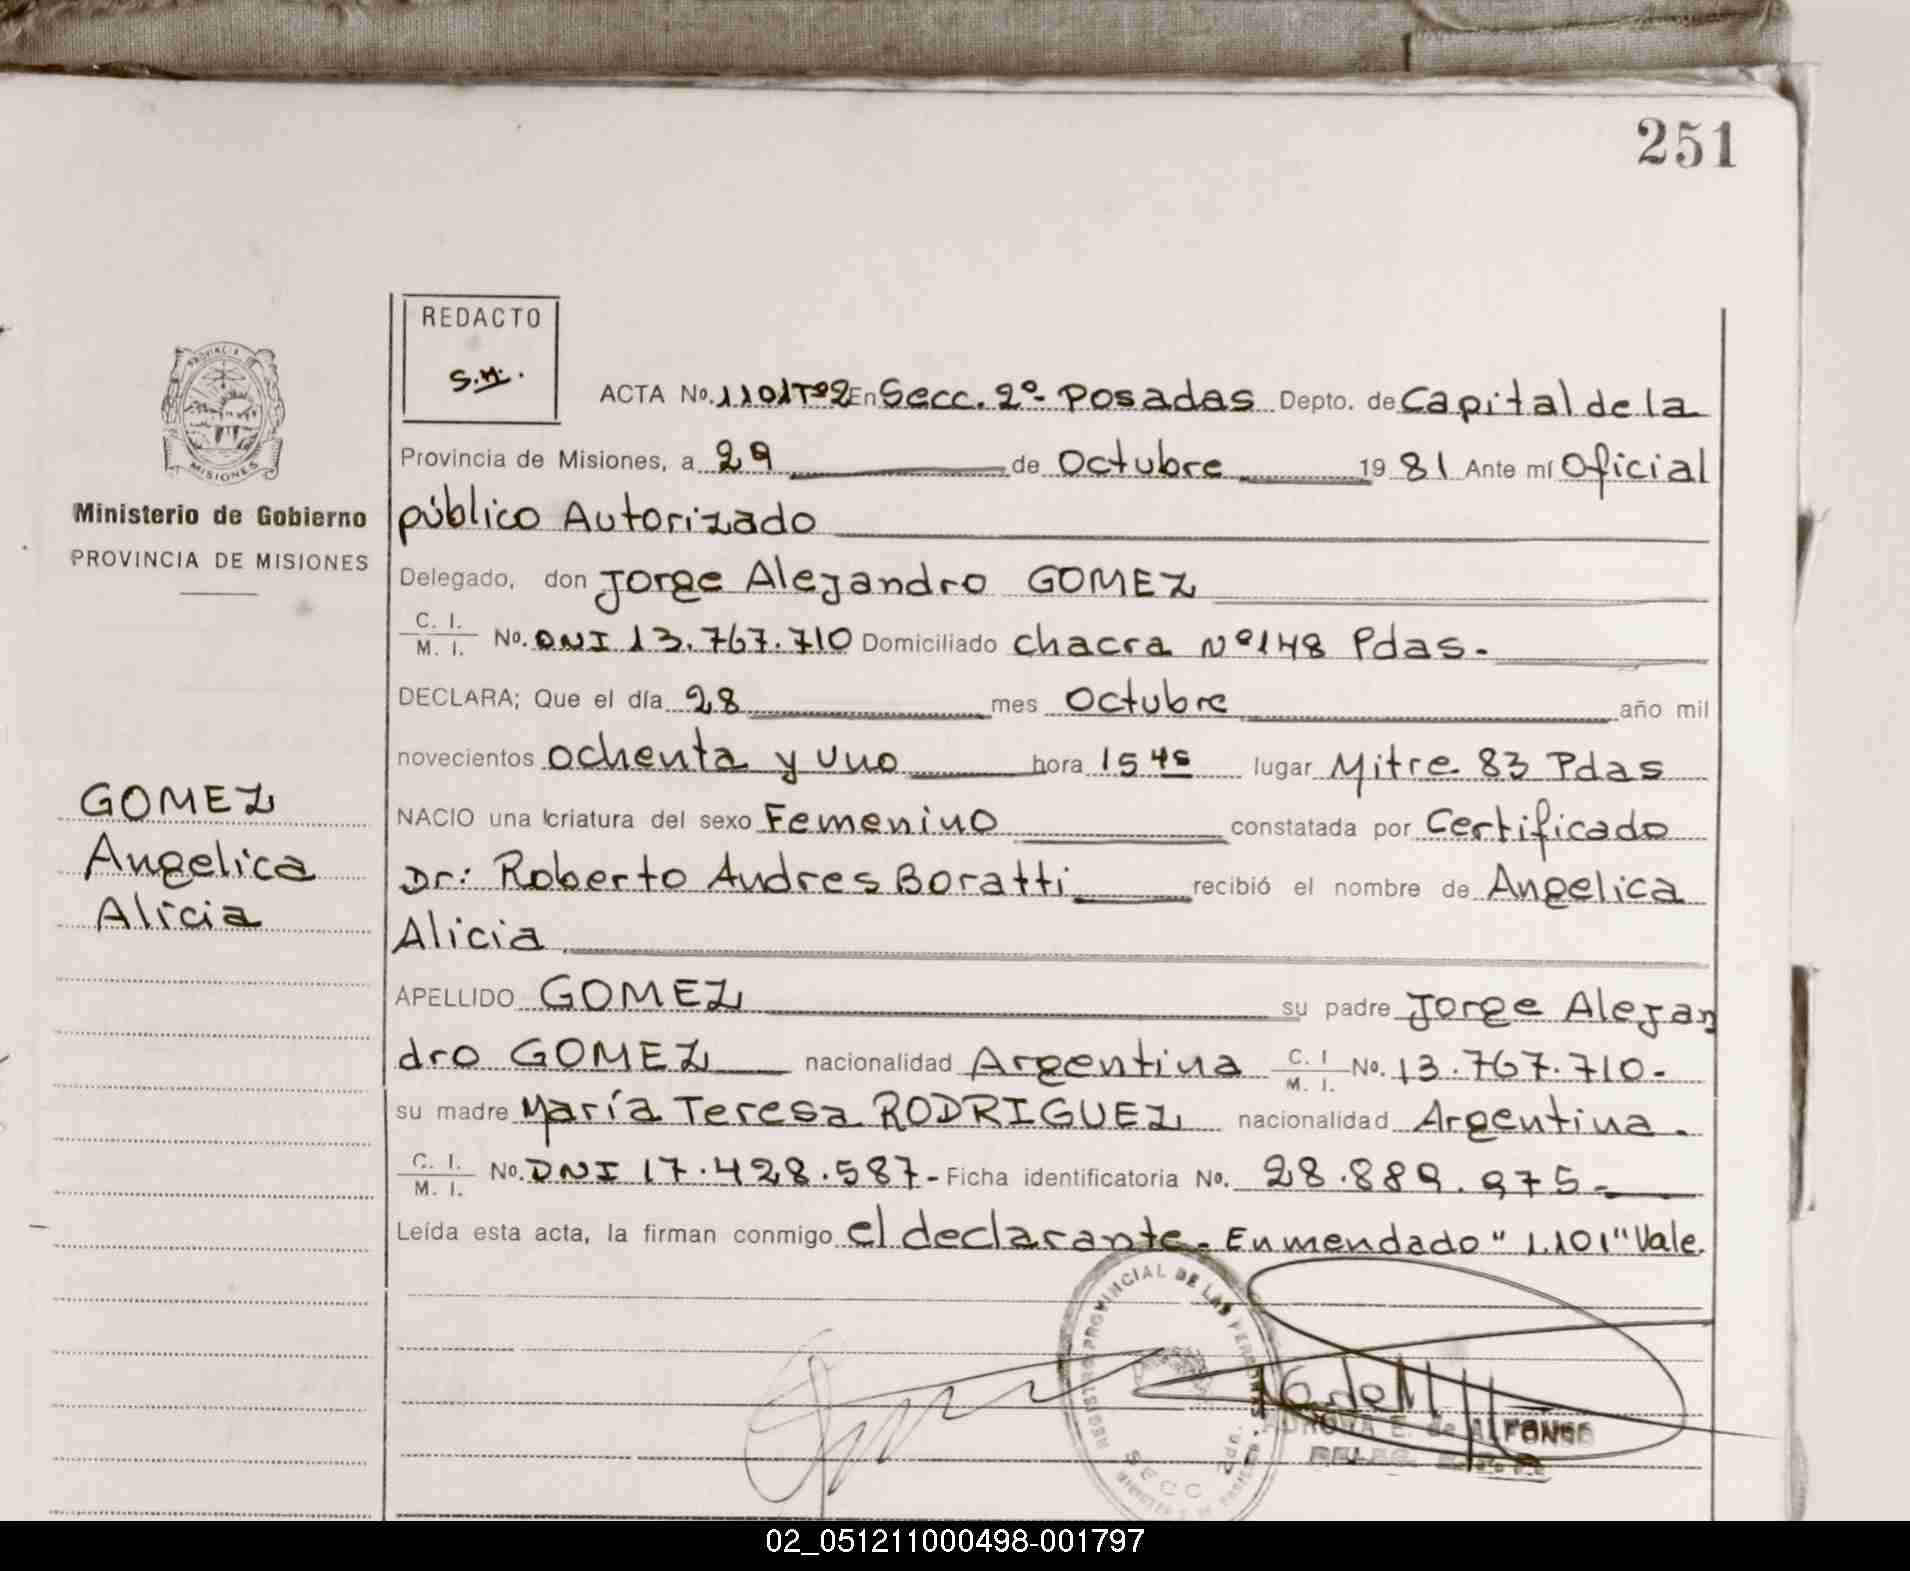 251
REDACTO
S.M.
PROVINCIA
MISIONES
ACTA No. 1101 Tº2 En Secc. 2º- Posadas Depto. de Capital de la
Provincia de Misiones, a 29 de Octubre 19 81 Ante mí Oficial
Ministerio de Gobierno
público Autorizado
PROVINCIA DE MISIONES
Delegado, don Jorge Alejandro GOMEZ
C. I.
M. I. No. DNI 13.767.710 Domiciliado chacra Nº 148 Pdas.
DECLARA; Que el día 28 mes Octubre año mil
novecientos ochenta y uno hora 15 45 lugar Mitre 83 Pdas
GOMEZ
NACIO una criatura del sexo Femenino constatada por Certificado
Angelica
Dr: Roberto Andres Boratti recibió el nombre de Angelica
Alicia
Alicia
APELLIDO GOMEZ su padre Jorge Alejan
dro GOMEZ nacionalidad Argentina C. I. M. I. No. 13.767.710-
su madre María Teresa RODRIGUEZ nacionalidad Argentina.
C. I.
M. I. No. DNI 17.428.587- Ficha identificatoria No. 28.889.975-
Leída esta acta, la firman conmigo el declarante- Enmendado "1.101" Vale.
REGISTRO PROVINCIAL DE LAS PERSONAS
SECC 2da.
E. de ALFONSO
02_051211000498-001797